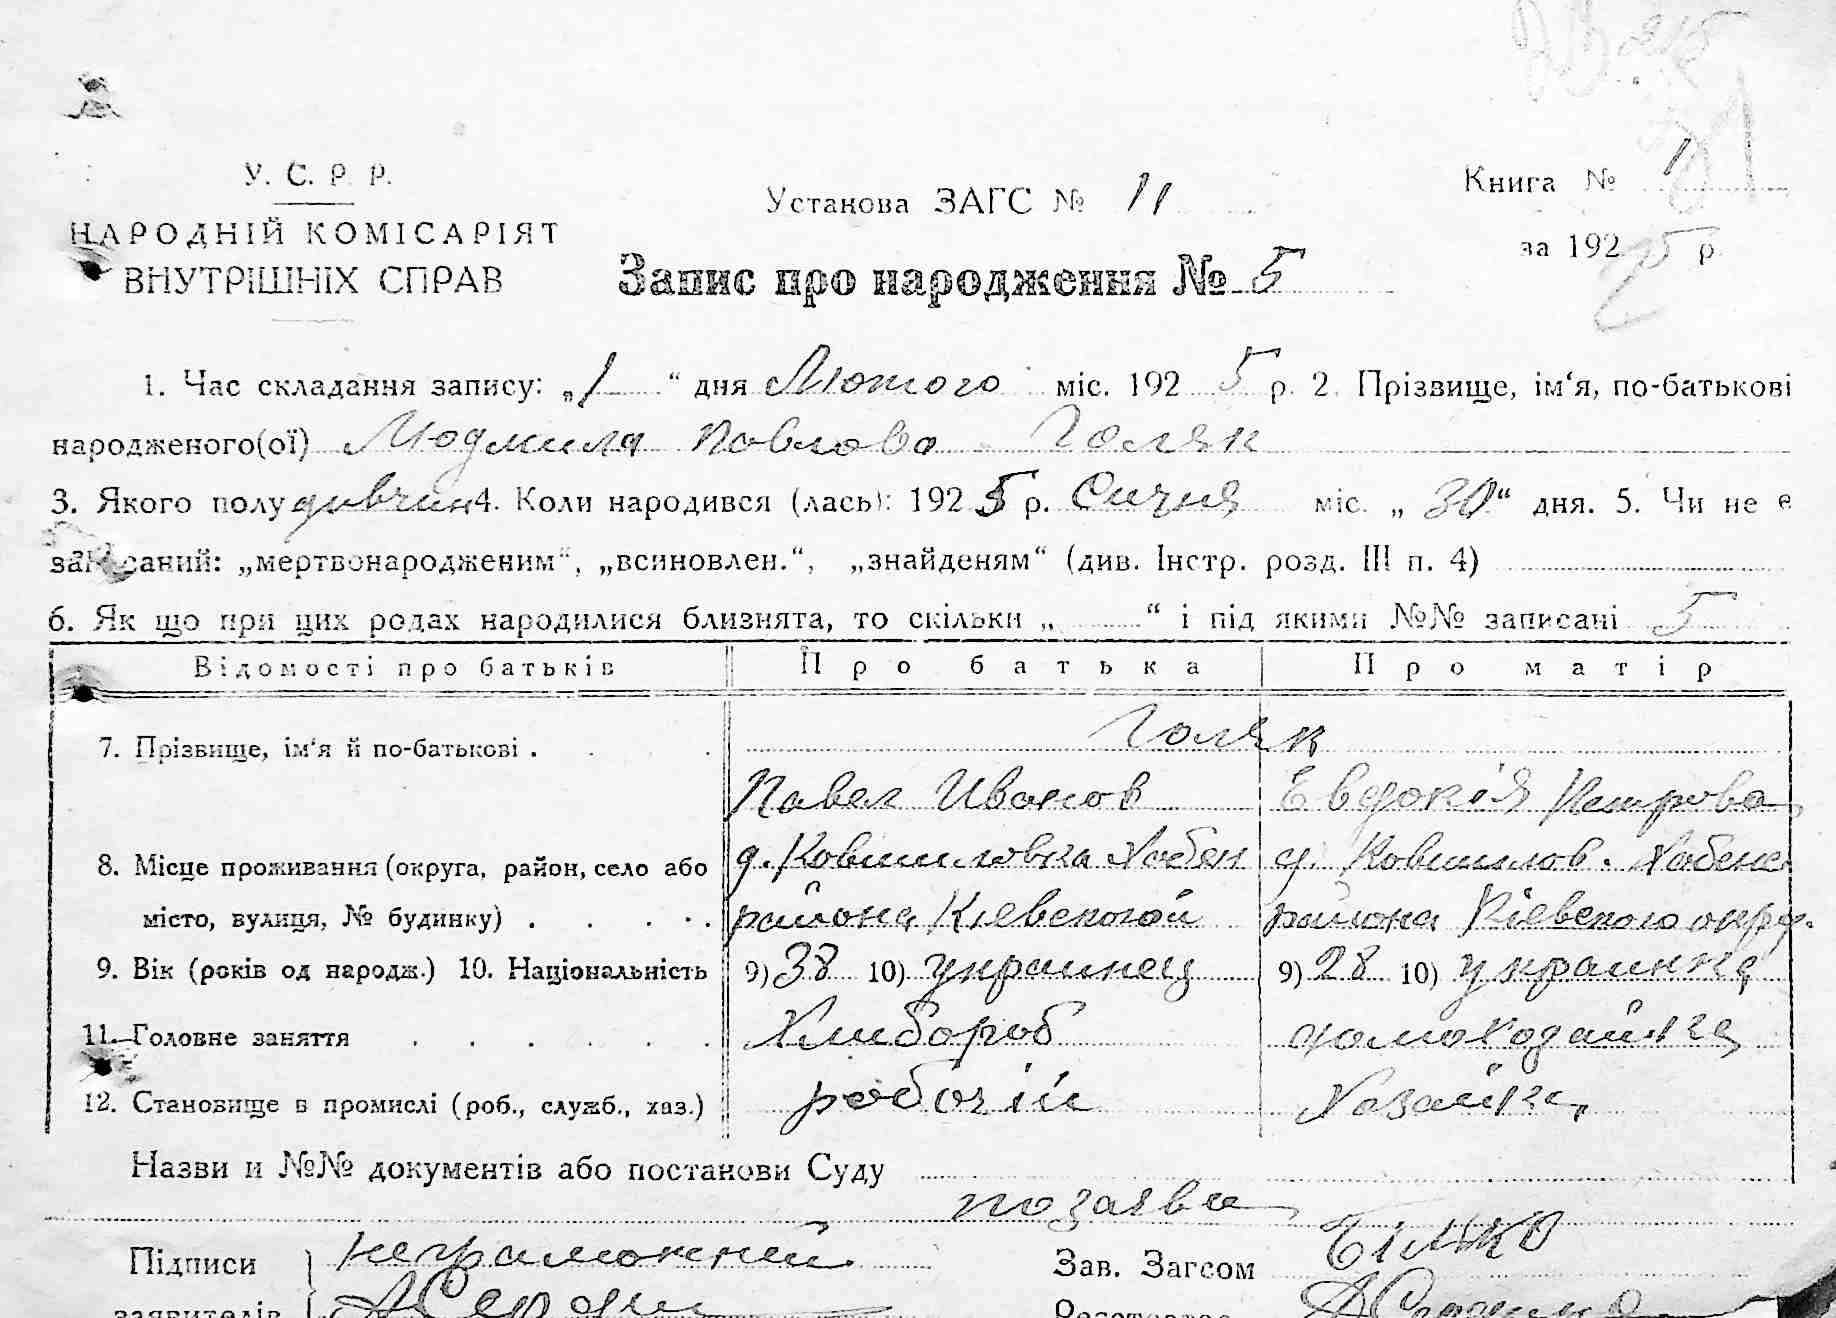 У. С. Р. Р.
НАРОДНІЙ КОМІСАРІЯТ
ВНУТРІШНІХ СПРАВ
Установа ЗАГС № 11
Книга № 1
за 192 5 р.
Запис про народження № 5
1. Час складання запису: „1“ дня Лютого міс. 192 5 р. 2. Прізвище, ім‘я, по-батькові
народженого(ої) Людмила Павлова Голяк
3. Якого полу дивчин 4. Коли народився (лась): 192 5 р. Сичня міс. „30“ дня. 5. Чи не є
записаний: „мертвонародженим“, „всиновлен.“, „знайденям“ (див. Інстр. розд. III п. 4)
6. Як що при цих родах народилися близнята, то скільки „ “ і під якими №№ записані 5
Відомості про батьків Про батька Про матір
7. Прізвище, ім‘я й по-батькові . Голяк
Павел Иванов Евдокія Петрова
8. Місце проживання (округа, район, село або д. Ковшиловка Хабен д. Ковшилов. Хабенс
місто, вулиця, № будинку) . района Кіевской района Кіевского округ.
9. Вік (років од народж.) 10. Національність 9) 38 10) украинец 9) 28 10) украинка
11. Головне заняття Хлибороб домохозайка
12. Становище в промислі (роб., служб., хаз.) робочій Хазайка
Назви и №№ документів або постанови Суду
по заяве
Підписи неграмотний Зав. Загсом Білько
заявителів